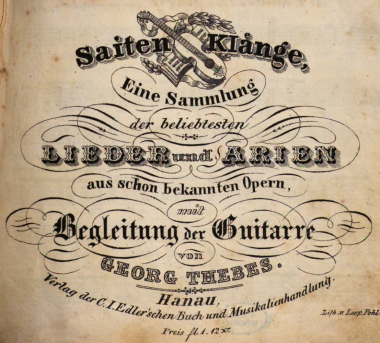 Saiten Klånge,
Eine Sammlung
der beliebtesten
LIEDER und ARIEN
aus schon bekannten Opern,
mit
Begleitung der Guitarre
von
GEORG THEBES.
Hanau,
Verlag der C. I. Edler'schen Buch und Musikalienhandlung.
Lith. v. Leop. Pohl.
Preis fl. 1. 12 xr.